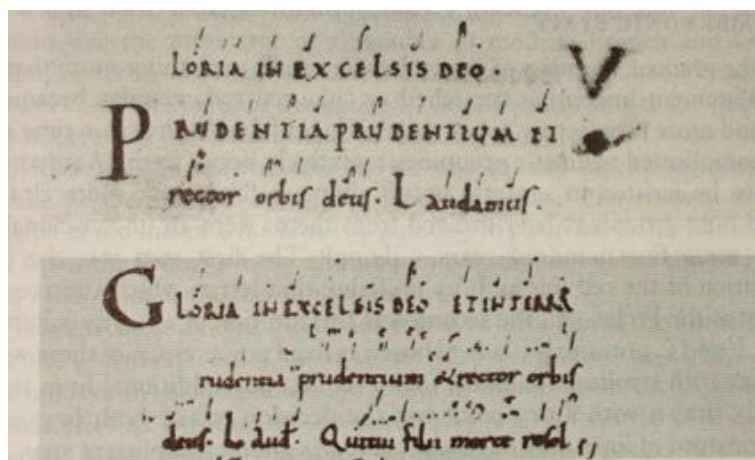 LORIA IN EXCELSIS DEO
PRUDENTIA PRUDENTIUM ET
rector orbis deus. Laudamus.
GLORIA IN EXCELSIS DEO ET IN TERRA
rudentia prudentium & rector orbis
deus. Laud. Qui tui filii morte